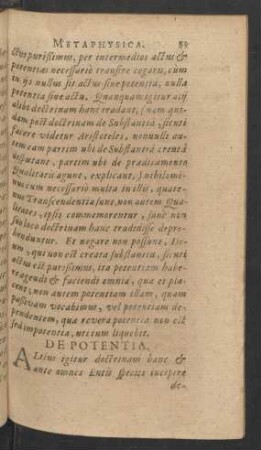 METAPHYSICA. 89
ctus purissimus, per intermedios actus &
potentias necessariò transire cogatis, cùm
in ijs nullus sit actus sine potentiâ, nulla
potentia sine actu. Quanquam igitur alij
alibi doctrinam hanc tradant, (nam qui-
dam post doctrinam de Substantiâ, sicuti
facere videtur Aristoteles, nonnulli au-
tem eam partim ubi de Substantiâ creatâ
disputant, partim ubi de prædicamento
Qualitatis agunt, explicant,) nihilomi-
nus cum necessariò multa in illis, quate-
nus Transcendentia sunt, non autem Qua-
litates, ipsis commemorentur, sanè non
suo loco doctrinam hanc tradidisse depre-
henduntur. Et negare non possunt, De-
um, qui non est creata substantia, sicuti
actus est purissimus, ita potentiam habe-
re agendi & faciendi omnia, quæ ei pla-
cent; non autem potentiam illam, quam
passivam vocabimus, vel potentiam de-
pendentem, quæ reverâ potentia non est
sed impotentia, uti tum liquebit.
DE POTENTIA.
ALtius igitur doctrinam hanc &
ante omnes Entis species incipere
de-